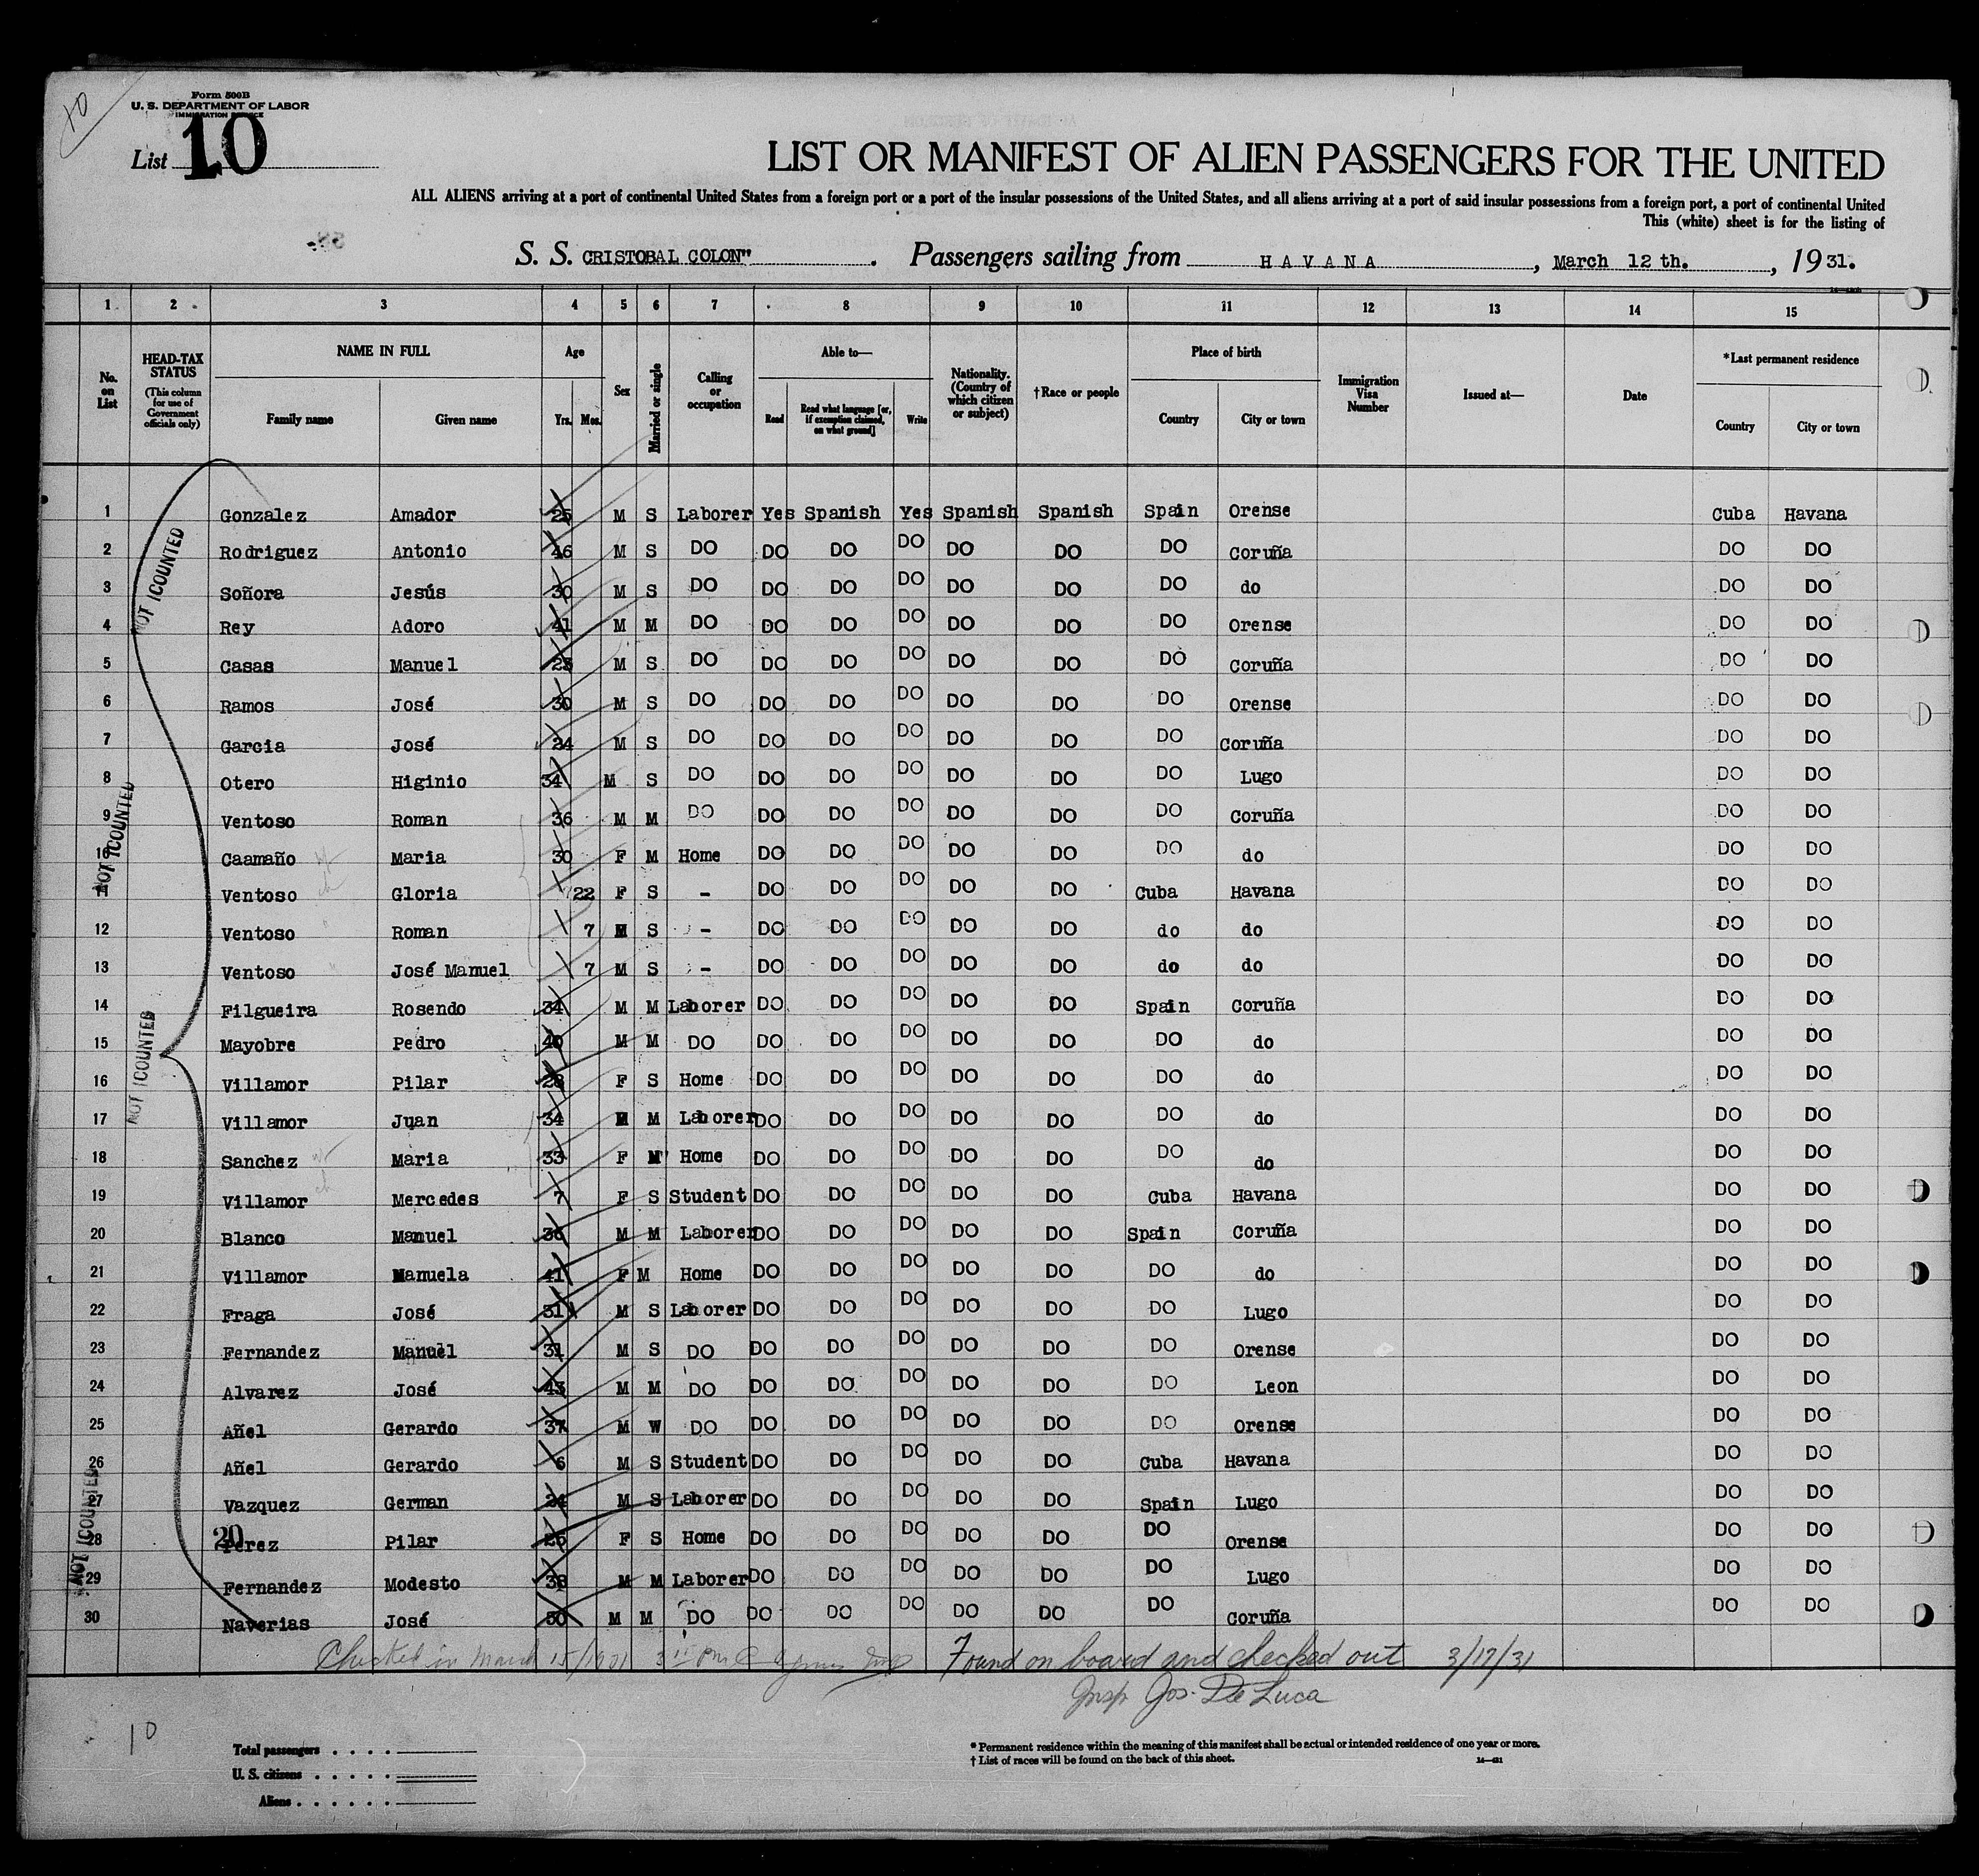 10
Form 500B
U. S. DEPARTMENT OF LABOR
IMMIGRATION SERVICE
List 10
LIST OR MANIFEST OF ALIEN PASSENGERS FOR THE UNITED
ALL ALIENS arriving at a port of continental United States from a foreign port or a port of the insular possessions of the United States, and all aliens arriving at a port of said insular possessions from a foreign port, a port of continental United
This (white) sheet is for the listing of
S. S. CRISTOBAL COLON". Passengers sailing from HAVANA, March 12 th., 1931.
1 2 3 4 5 6 7 8 9 10 11 12 13 14 15
No. on List
HEAD-TAX STATUS (This column for use of Government officials only)
NAME IN FULL
Family name Given name
Age
Yrs. Mos.
Sex
Married or single
Calling or occupation
Able to—
Read Read what language [or, if exemption claimed, on what ground] Write
Nationality. (Country of which citizen or subject)
†Race or people
Place of birth
Country City or town
Immigration Visa Number
Issued at—
Date
*Last permanent residence
Country City or town
1 Gonzalez Amador 25 M S Laborer Yes Spanish Yes Spanish Spanish Spain Orense Cuba Havana
2 Rodriguez Antonio 46 M S DO DO DO DO DO DO DO Coruña DO DO
3 Soñora Jesús 30 M S DO DO DO DO DO DO DO do DO DO
4 Rey Adoro 41 M M DO DO DO DO DO DO DO Orense DO DO
5 Casas Manuel 23 M S DO DO DO DO DO DO DO Coruña DO DO
6 Ramos José 30 M S DO DO DO DO DO DO DO Orense DO DO
7 Garcia José 24 M S DO DO DO DO DO DO DO Coruña DO DO
8 Otero Higinio 34 M S DO DO DO DO DO DO DO Lugo DO DO
9 Ventoso Roman 36 M M DO DO DO DO DO DO DO Coruña DO DO
10 Caamaño Maria 30 F M Home DO DO DO DO DO DO do DO DO
11 Ventoso Gloria 22 F S - DO DO DO DO DO Cuba Havana DO DO
12 Ventoso Roman 7 M S - DO DO DO DO DO do do DO DO
13 Ventoso José Manuel 7 M S - DO DO DO DO DO do do DO DO
14 Filgueira Rosendo 34 M M Laborer DO DO DO DO DO Spain Coruña DO DO
15 Mayobre Pedro 40 M M DO DO DO DO DO DO DO do DO DO
16 Villamor Pilar 28 F S Home DO DO DO DO DO DO do DO DO
17 Villamor Juan 34 M M Laborer DO DO DO DO DO DO do DO DO
18 Sanchez Maria 33 F M Home DO DO DO DO DO DO do DO DO
19 Villamor Mercedes 7 F S Student DO DO DO DO DO Cuba Havana DO DO
20 Blanco Manuel 36 M M Laborer DO DO DO DO DO Spain Coruña DO DO
21 Villamor Manuela 41 F M Home DO DO DO DO DO DO do DO DO
22 Fraga José 31 M S Laborer DO DO DO DO DO DO Lugo DO DO
23 Fernandez Manuel 31 M S DO DO DO DO DO DO DO Orense DO DO
24 Alvarez José 43 M M DO DO DO DO DO DO DO Leon DO DO
25 Añel Gerardo 37 M W DO DO DO DO DO DO DO Orense DO DO
26 Añel Gerardo 6 M S Student DO DO DO DO DO Cuba Havana DO DO
27 Vazquez German 24 M S Laborer DO DO DO DO DO Spain Lugo DO DO
28 20 Perez Pilar 25 F S Home DO DO DO DO DO DO Orense DO DO
29 Fernandez Modesto 38 M M Laborer DO DO DO DO DO DO Lugo DO DO
30 Naverias José 50 M M DO DO DO DO DO DO DO Coruña DO DO
NOT COUNTED
NOT COUNTED
NOT COUNTED
NOT COUNTED
Checked in March 15/1931
Found on board and checked out 3/17/31
Insp Jos. De Luca
10
Total passengers
U. S. citizens
Aliens
* Permanent residence within the meaning of this manifest shall be actual or intended residence of one year or more.
† List of races will be found on the back of this sheet.
14—431